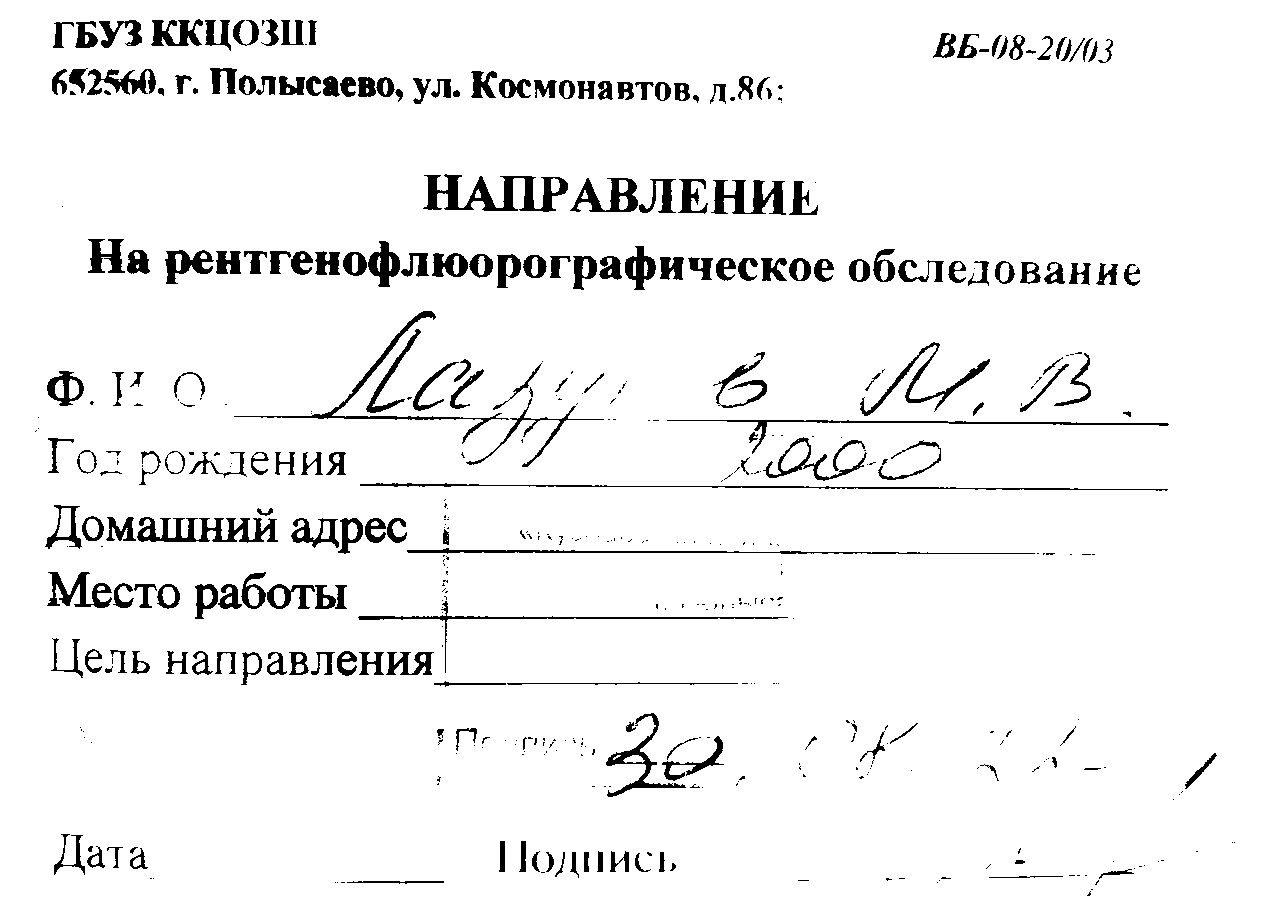 ГБУЗ ККЦОЗШ
ВБ-08-20/03
652560, г. Полысаево, ул. Космонавтов, д.86;
НАПРАВЛЕНИЕ
На рентгенофлюорографическое обследование
Ф. И. О. М. В.
Год рождения 2000
Домашний адрес
Место работы
Цель направления
Подпись 30.
Дата Подпись